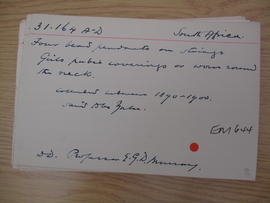 31.164 A-D South Africa
Four bead pendants on strings
Girls pubic coverings or worn round
the neck.
collected between 1890-1900.
Said to be Zulu.
EM1644
DD. Professor E.G.D. Murray.